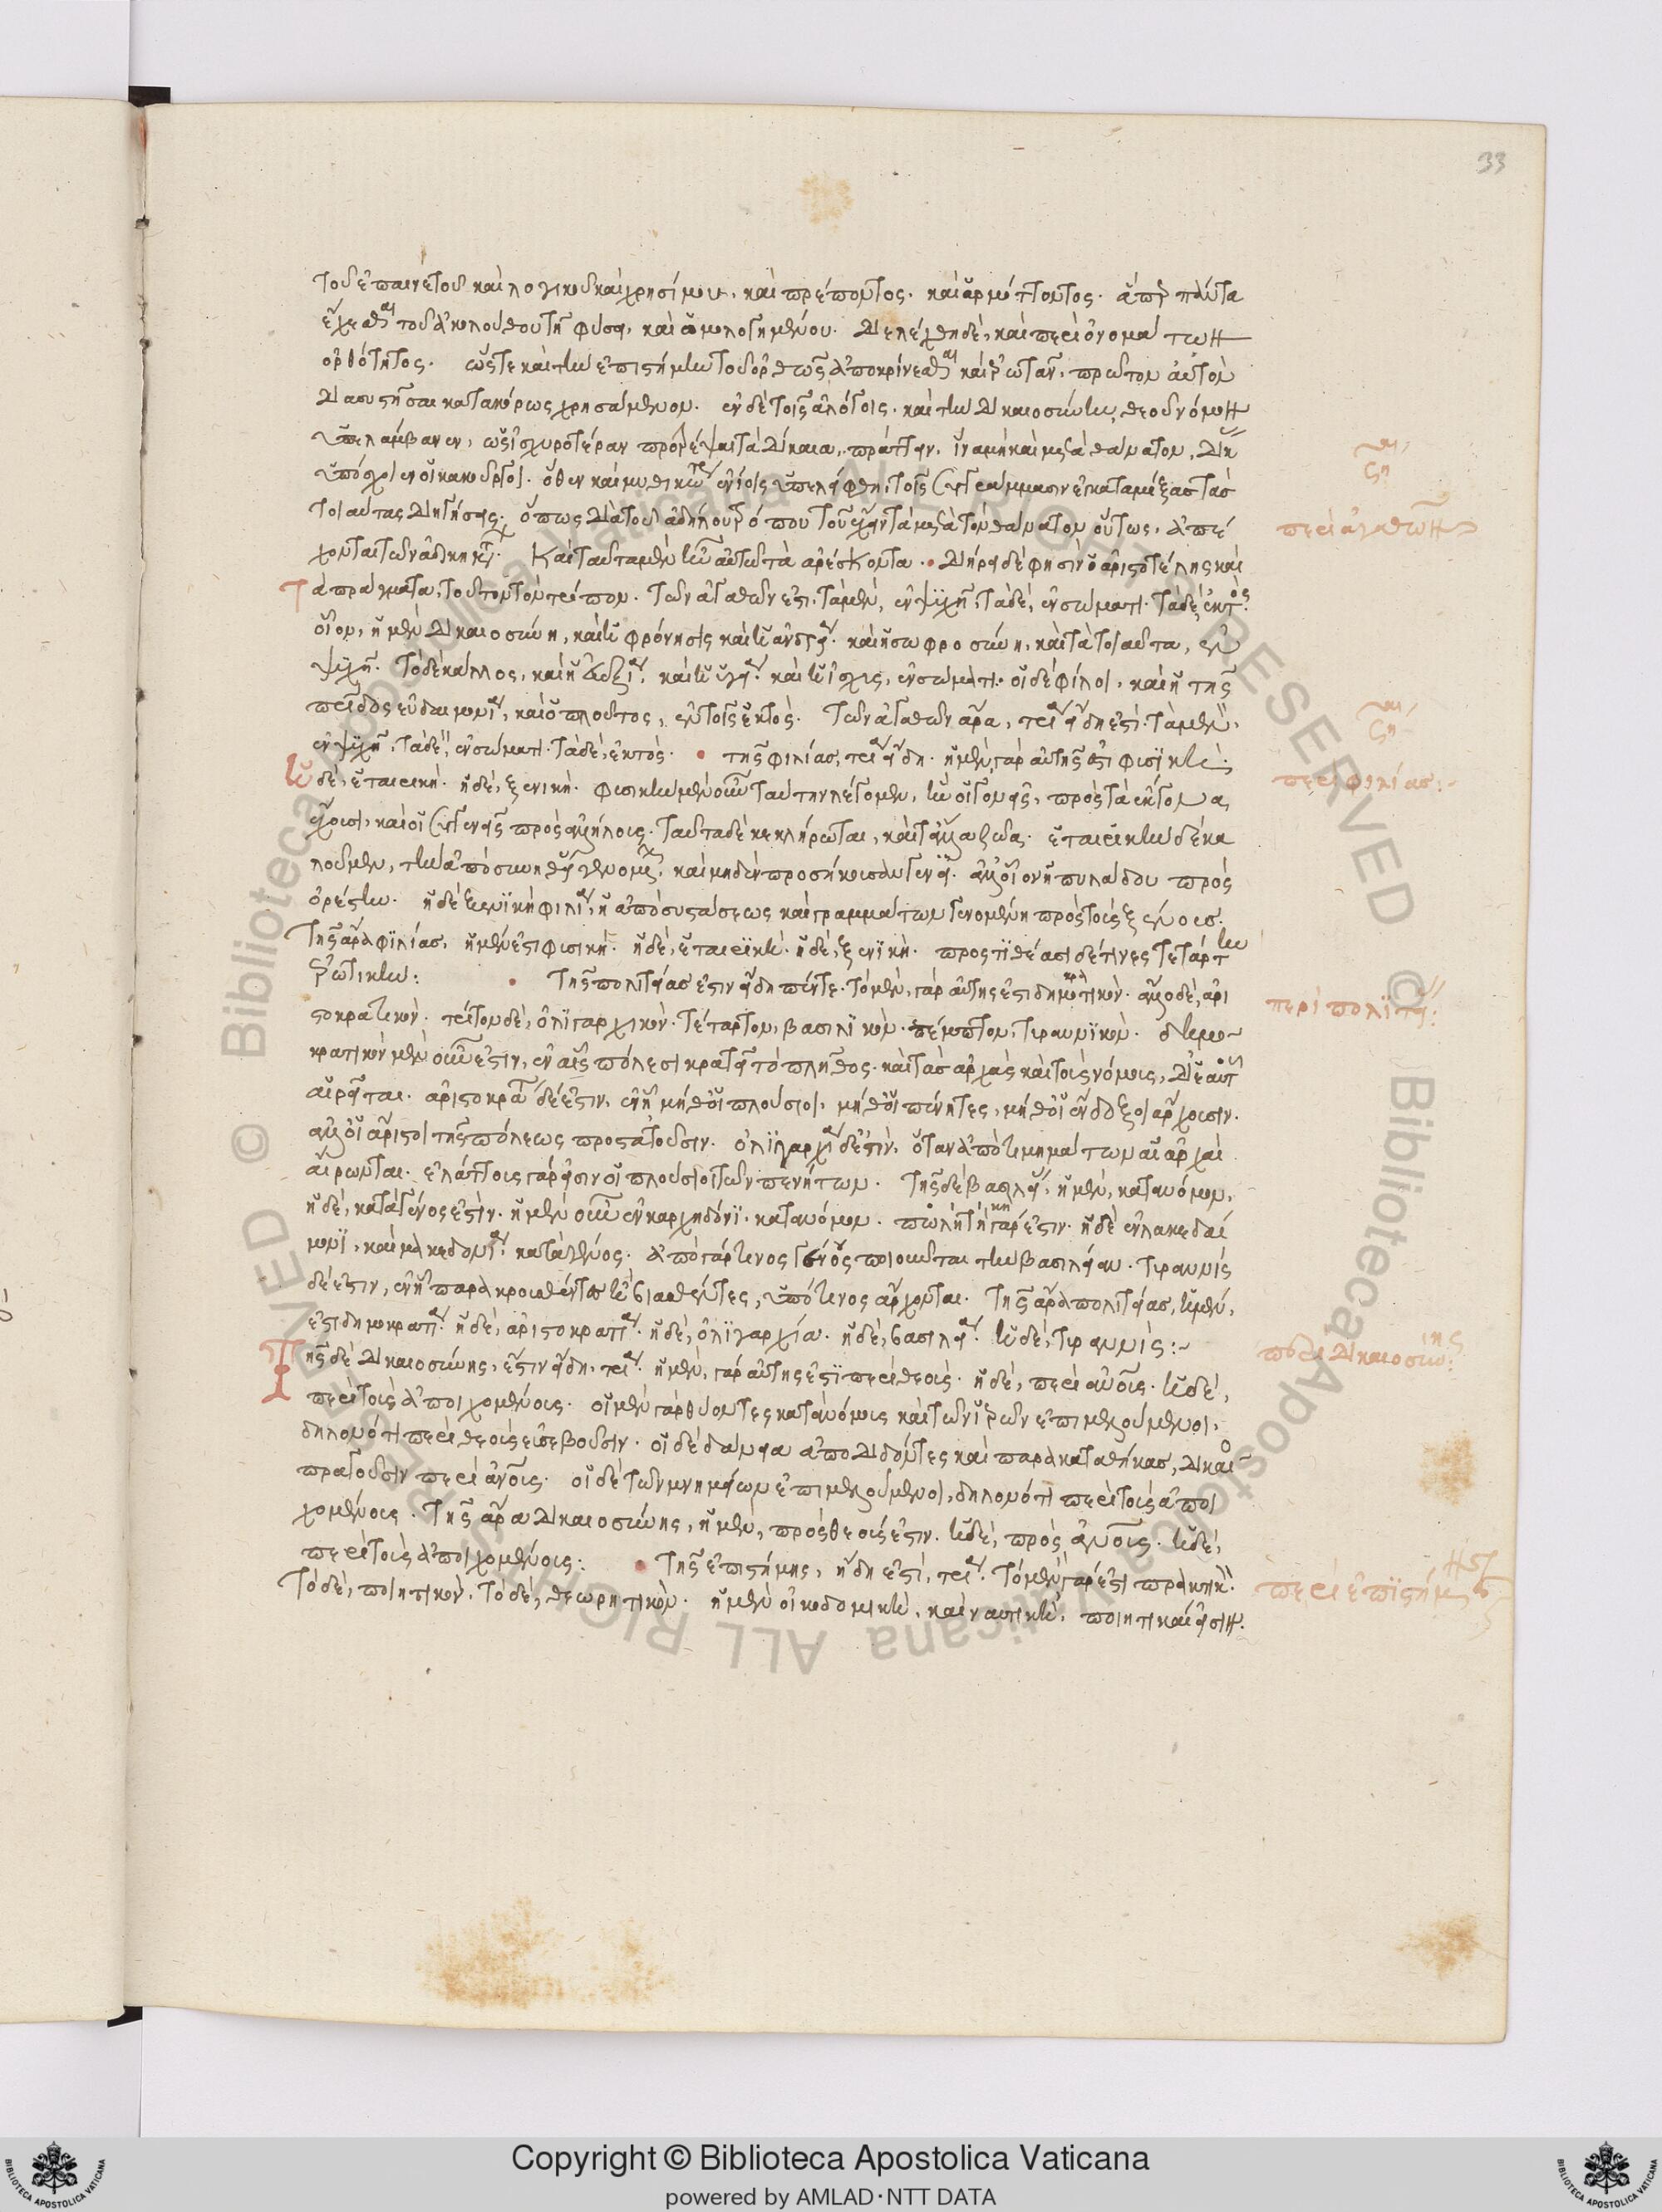 33
τοῦ ἐπαινετοῦ καὶ λογικοῦ καὶ χρησίμου, καὶ πρέποντος· καὶ ἁρμόττοντος· ἅπερ πάντα
ἔχεσθαι τοῦ ἀκολούθου τῆ φύσει, καὶ ὁμολογημένου. διελέχθη δὲ, καὶ περὶ ὀνομάτων
ὀρθότητος. ὥστε καὶ τὴν ἐπιστήμην τοῦ ὀρθῶς ἀποκρίνεσθαι καὶ ἐρωτᾶν, πρῶτον αὐτὸν
διασυστῆσαι κατακόρως χρησάμενον. ἐν δὲ τοῖς διαλόγοις· καὶ τὴν δικαιοσύνην, θεοῦ νόμον
ὑπελάμβανεν, ὡς ἰσχυροτέραν προτρέψαι τὰ δίκαια, πράττειν, ἵνα μὴ καὶ μετὰ θάνατον, δίκην
ὑπόσχοιεν οἱ κακοῦργοι. ὅθεν καὶ μυθικώτερος ἐνίοις ὑπελήφθη, τοῖς συγγράμμασιν ἐγκαταμίξας τὰς
τοιαύτας διηγήσεις· ὅπως διὰ τοῦ ἀδήλου τρόπου τοῦ ἔχειν τὰ μετὰ τὸν θάνατον οὕτως, ἀπέ
χωνται τῶν ἀδικημάτων. Καὶ ταῦτα μὲν ἦν αὐτῶ τὰ ἀρέσκοντα. διήρει δέ φησὶν ὁ ἀριστοτέλης καὶ
τὰ πράγματα, τοῦτον τὸν τρόπον. τῶν ἀγαθῶν ἐστι, τὰ μὲν, ἐν ψυχῆ, τὰ δὲ, ἐν σώματι· τὰ δὲ, ἐκτός·
οἷον, ἡ μὲν δικαιοσύνη, καὶ ἡ φρόνησις καὶ ἡ ἀνδρεία· καὶ ἡ σωφροσύνη, καὶ τὰ τοιαῦτα, ἐν
ψυχῆ. τὸ δὲ κάλλος, καὶ ἡ εὐεξία, καὶ ἡ ὑγεία· καὶ ἡ ἰσχὺς, ἐν σώματι· οἱ δὲ φίλοι, καὶ ἡ τῆς
πατρίδος εὐδαιμονία, καὶ ὁ πλοῦτος, ἐν τοῖς ἐκτός. τῶν ἀγαθῶν ἄρα, τρία εἴδη ἐστί· τὰ μὲν,
ἐν ψυχῆ, τὰ δὲ, ἐν σώματι· τὰ δὲ, ἐκτός. τῆς φιλίας, τρία εἴδη. ἡ μὲν γὰρ αὐτῆς ἐστι φυσϊκή·
ἡ δὲ, ἑταιρική. ἡ δὲ, ξενική. φυσικὴν μὲν οὖν ταύτην λέγομεν, ἣν οἱ γονεῖς, πρὸς τὰ ἔκγονα,
ἔχουσι, καὶ οἱ συγγενεῖς πρὸς ἀλλήλους. ταῦτα δὲ κεκλήρωται, καὶ τἆλλα ζῶα. ἑταιρικὴν δὲ κα
λοῦμεν, τὴν ἀπὸ συνηθείας γενομένην, καὶ μηδὲν προσήκουσαν γένει. ἀλλ' οἷον ἡ πυλάδου πρὸς
ὀρέστην. ἡ δὲ ξενϊκὴ φιλία, ἡ ἀπὸ συστάσεως καὶ γραμμάτων γενομένη πρὸς τοὺς ξένους.
τῆς ἄρα φϊλίας, ἡ μὲν ἐστι φυσική. ἡ δὲ, ἑταιρϊκή. ἡ δὲ, ξενϊκὴ. προστϊθέασι δέ τινες τετάρτην
ἐρωτικήν: τῆς πολιτείας ἐστὶν εἴδη πέντε. τὸ μὲν, γὰρ αὐτῆς ἐστι δημοκρατικόν. ἄλλο δὲ, ἀρι
στοκρατικόν. τρίτον δὲ, ὀλϊγαρχικόν. τέταρτον, βασιλϊκόν. πέμπτον, τυραννϊκόν. δημο-
κρατικὸν μὲν οὖν ἐστιν, ἐν αἷς πόλεσι κρατεῖ τὸ πλῆθος. καὶ τὰς ἀρχὰς καὶ τοὺς νόμους, δι' ἑαυτοῦ
αἱρεῖται. ἀριστοκρατία δέ ἐστιν, ἐν ἧ μήθ' οἱ πλούσιοι, μήθ' οἱ πένητες, μήθ' οἱ ἔνδοξοι ἄρχουσιν.
ἀλλ' οἱ ἄριστοι τῆς πόλεως προστατοῦσιν. ὀλϊγαρχία δέ ἐστιν, ὅταν ἀπὸ τιμημάτων αἱ ἀρχαὶ
αἱρῶνται. ἐλάττους γάρ εἰσιν οἱ πλούσιοι τῶν πενήτων. τῆς δὲ βασιλείας, ἡ μὲν, κατὰ νόμον,
ἡ δὲ, κατὰ γένος ἐστίν. ἡ μὲν οὖν ἐν καρχηδόνϊ, κατὰ νόμον. πωλητικὴ γάρ ἐστιν. ἡ δὲ ἐν λακεδαί
μονϊ, καὶ μακεδονία, κατὰ γένος. ἀπὸ γάρ τινος γένους ποιοῦνται τὴν βασιλείαν. τυραννὶς
δέ ἐστιν, ἐν ἧ παρακρουσθέντες ἢ βιασθέντες, ὑπό τινος ἄρχονται. τῆς ἄρα πολιτείας, ἡ μὲν,
ἐστι δημοκρατία. ἡ δὲ, ἀριστοκρατία. ἡ δὲ, ὀλϊγαρχία. ἡ δὲ, βασιλεία. ἡ δὲ, τυραννὶς:~
Τῆς δὲ δικαιοσύνης, ἐστὶν εἴδη, τρία. ἡ μὲν, γὰρ αὐτῆς ἐστϊ περὶ θεούς. ἡ δὲ, περὶ ἀνους. ἡ δὲ,
περὶ τοὺς ἀποιχομένους. οἱ μὲν γὰρ θύοντες κατὰ νόμους καὶ τῶν ἱερῶν ἐπιμελούμενοι,
δηλονότι περὶ θεοὺς εὐσεβοῦσιν. οἱ δὲ δάνεια ἀποδιδόντες καὶ παρακαταθήκας, δικαιο
πραγοῦσιν περὶ ἀνους. οἱ δὲ τῶν μνημείων ἐπιμελούμενοι, δηλονότι περὶ τοὺς ἀποι
χομένους. τῆς ἄρα δικαιοσύνης, ἡ μὲν, πρὸς θεούς ἐστιν. ἡ δὲ, πρὸς ἀνους. ἡ δὲ,
περὶ τοὺς ἀποιχομένους: τῆς ἐπιστήμης, εἴδη ἐστὶ, τρία. τὸ μὲν γάρ ἐστι πρακτικόν.
τὸ δὲ, ποιητικόν. τὸ δὲ, θεωρητικόν. ἡ μὲν οἰκοδομικὴ, καὶ ναυπηκὴ, ποιητικαί εἰσιν.
περὶ ἀγαθῶν
περὶ φιλίας:-
περὶ πολϊτείας:
περὶ δικαιοσύνης:
περὶ ἐπϊστήμης
Copyright © Biblioteca Apostolica Vaticana
powered by AMLAD·NTT DATA
© Biblioteca Apostolica Vaticana ALL RIGHTS RESERVED
© Biblioteca Apostolica Vaticana ALL RIGHTS RESERVED